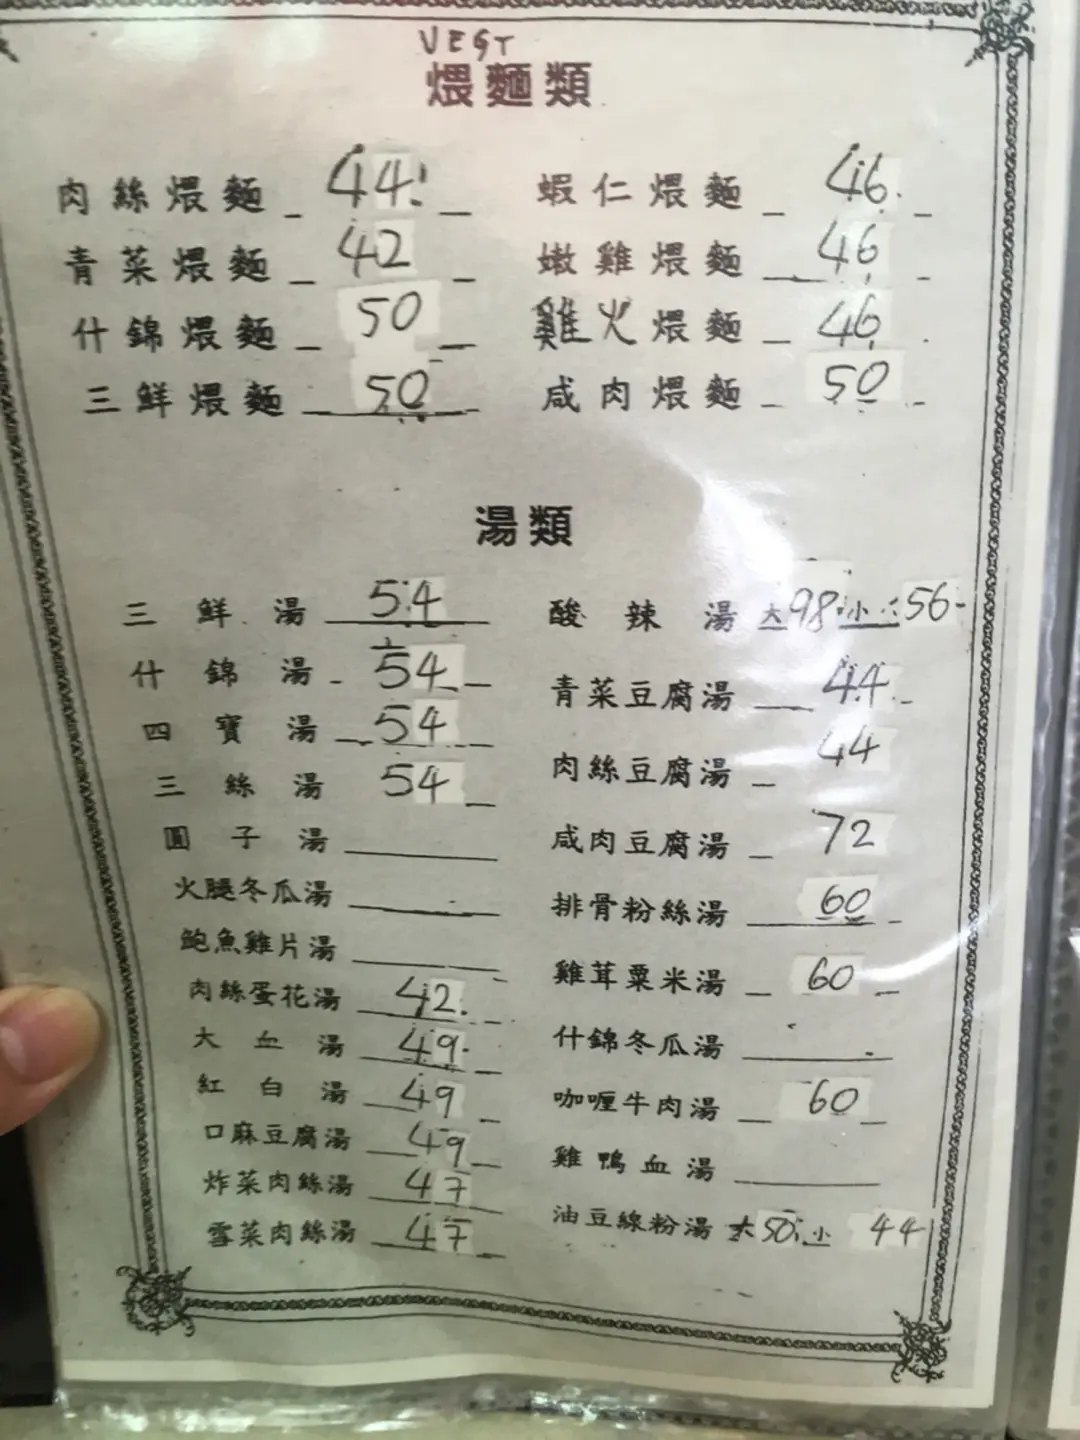 VEGT
煨麵類
肉絲煨麵 44 蝦仁煨麵 46
青菜煨麵 42 嫩雞煨麵 46
什錦煨麵 50 雞火煨麵 46
三鮮煨麵 50 咸肉煨麵 50
湯類
三鮮湯 54 酸辣湯 大98 小56
什錦湯 54 青菜豆腐湯 44
四寶湯 54 肉絲豆腐湯 44
三絲湯 54 咸肉豆腐湯 72
圓子湯 排骨粉絲湯 60
火腿冬瓜湯 雞茸粟米湯 60
鮑魚雞片湯 什錦冬瓜湯
肉絲蛋花湯 42 咖喱牛肉湯 60
大血湯 49 雞鴨血湯
紅白湯 49 油豆線粉湯 大50 小44
口麻豆腐湯 49
炸菜肉絲湯 47
雪菜肉絲湯 47